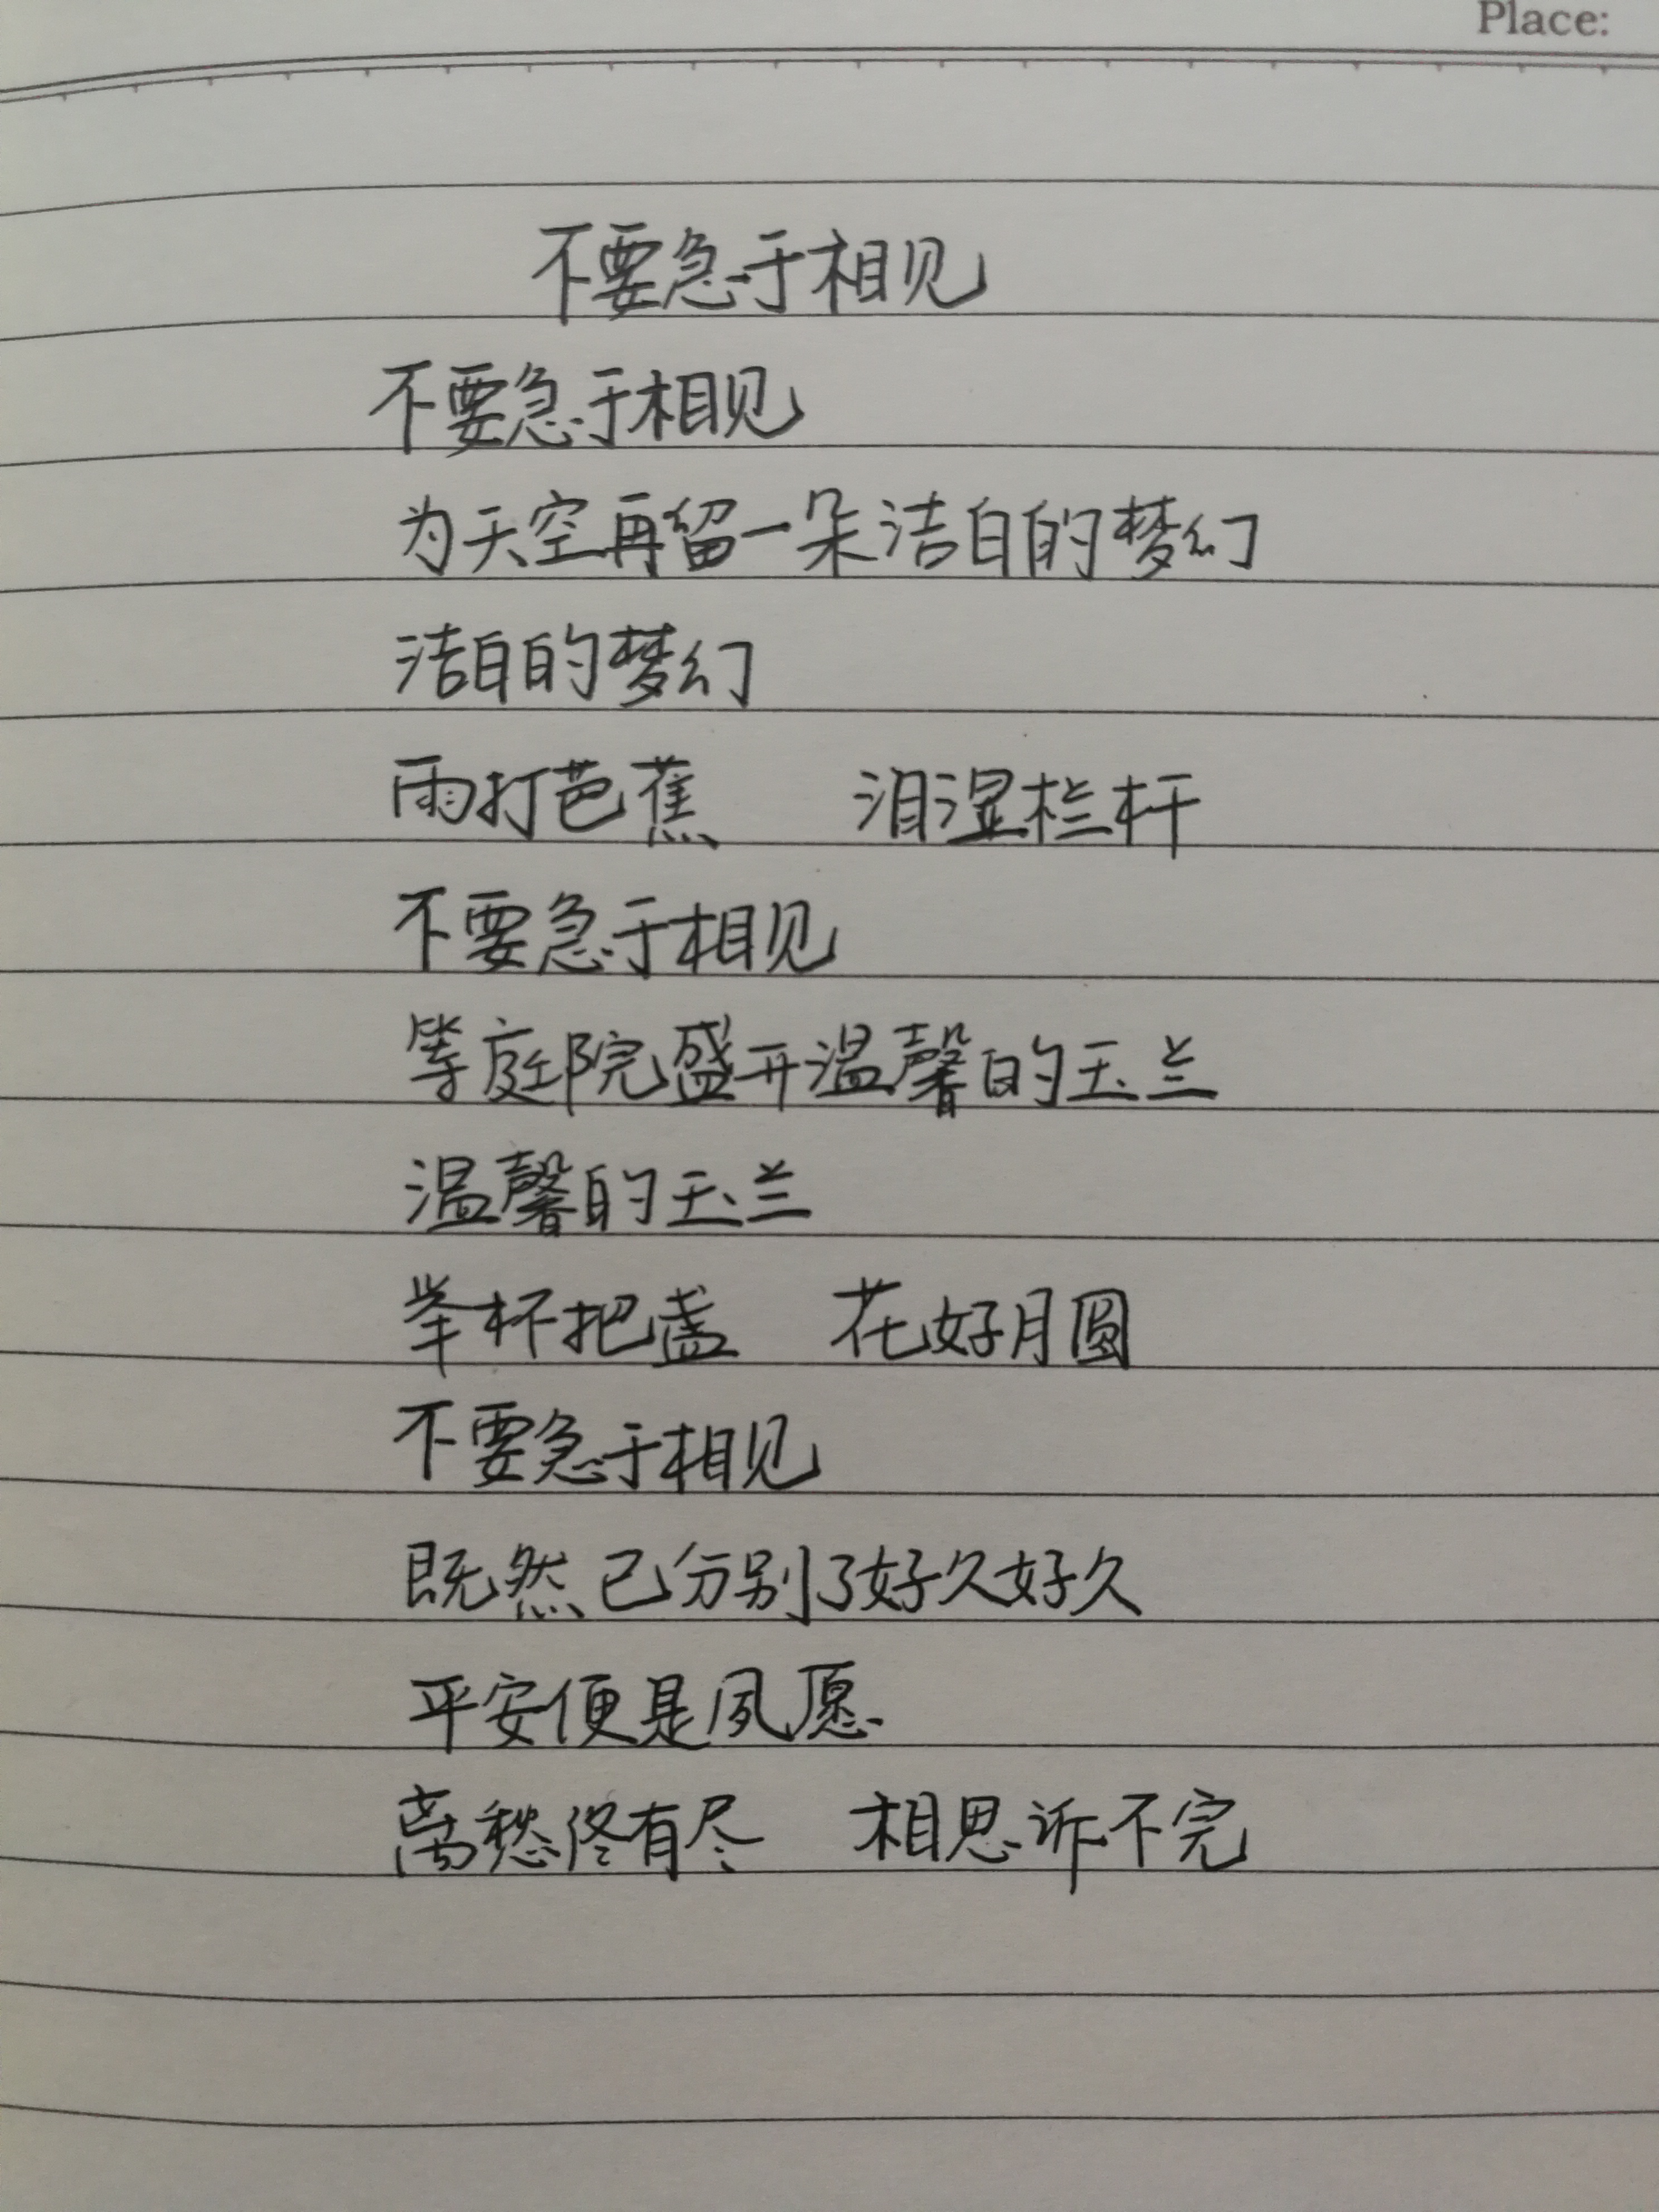 Place:
不要急于相见
不要急于相见
为天空再留一朵洁白的梦幻
洁白的梦幻
雨打芭蕉 泪湿栏杆
不要急于相见
等庭院盛开温馨的玉兰
温馨的玉兰
举杯把盏 花好月圆
不要急于相见
既然已分别了好久好久
平安便是夙愿
离愁终有尽 相思诉不完